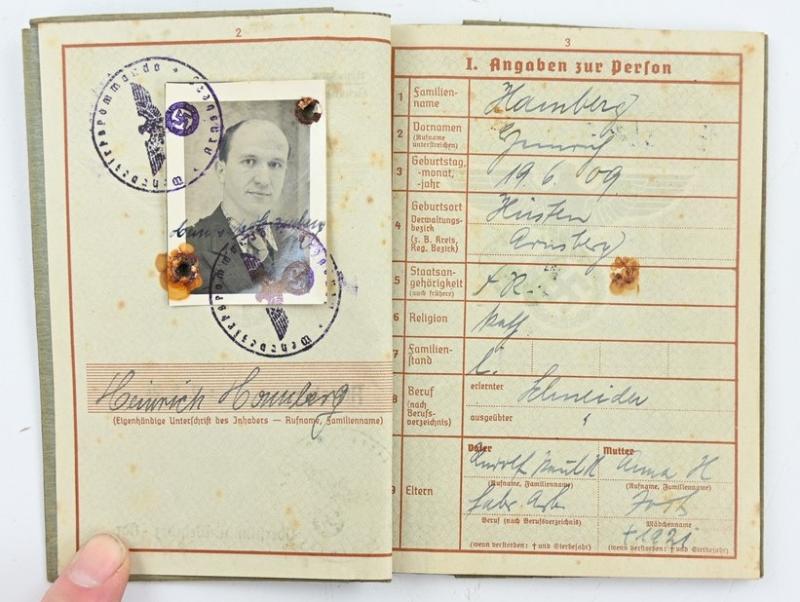 2
Wehrbezirkskommando
Heinrich Homberg
(Eigenhändige Unterschrift des Inhabers — Rufname, Familienname)
3
I. Angaben zur Person
1 Familien-
name
Hamberg
2 Vornamen
(Rufname
unterstreichen)
3 Geburtstag,
-monat,
-jahr
19. 6. 09
4 Geburtsort
Verwaltungs-
bezirk
(z. B. Kreis,
Reg. Bezirk)
Hüsten
Arnsberg
5 Staatsan-
gehörigkeit
(auch frühere)
6 Religion
kath
7 Familien-
stand
l.
8 Beruf
(nach
Berufs-
verzeichnis)
erlernter Schneider
ausgeübter "
9 Eltern
Vater Mutter
Anna H
(Rufname, Familienname) (Rufname, Familienname)
Beruf (nach Berufsverzeichnis) Mädchenname
† 1921
(wenn verstorben: † und Sterbejahr) (wenn verstorben: † und Sterbejahr)